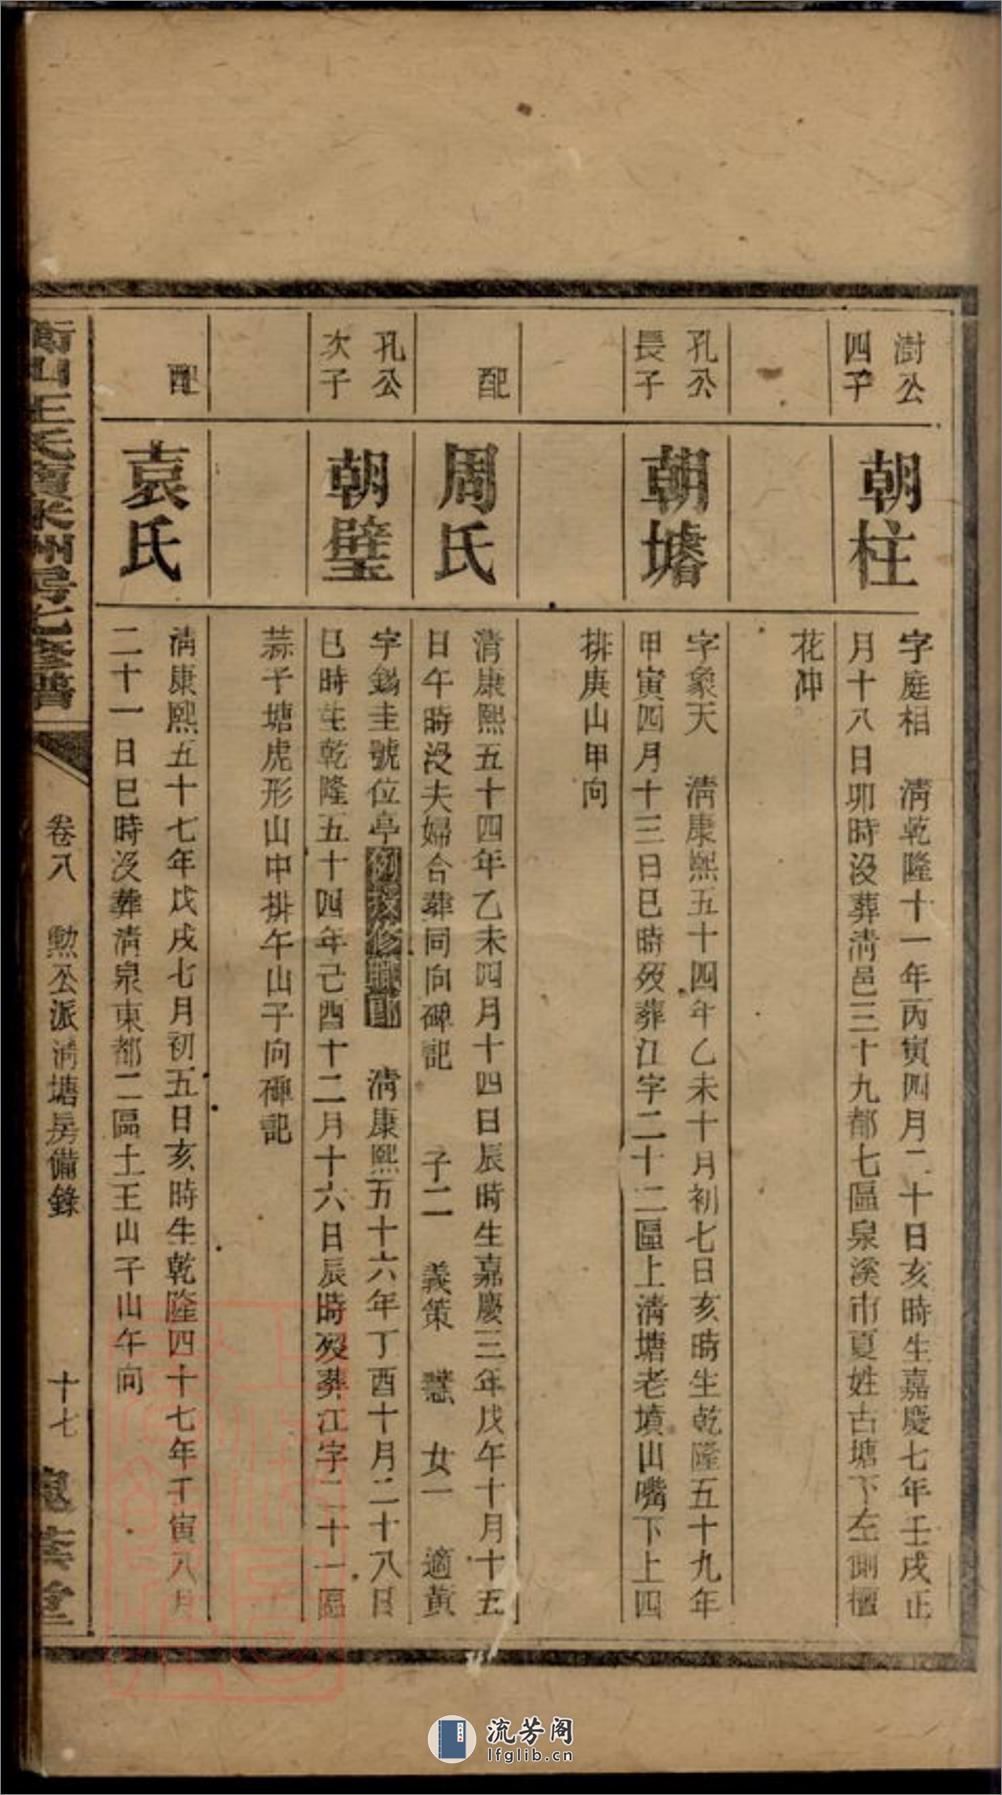 澍公
四子
朝柱
字庭相　清乾隆十一年丙寅四月二十日亥時生嘉慶七年壬戌正
月十八日卯時沒葬清邑三十九都七區泉溪市夏姓古塘下左側檀
花冲
孔公
長子
朝壿
字象天　清康熙五十四年乙未十月初七日亥時生乾隆五十九年
甲寅四月十三日巳時歿葬江字二十二區上清塘老墳山嘴下上四
排庚山甲向
配
周氏
清康熙五十四年乙未四月十四日辰時生嘉慶三年戊午十月十五
日午時沒夫婦合葬同向碑記　子二　義策　慧　女一　適黃
孔公
次子
朝璧
字錫圭號位亭例授修職郎　清康熙五十六年丁酉十月二十八日
巳時生乾隆五十四年己酉十二月十六日辰時歿葬江字二十一區
蒜子塘虎形山中排午山子向碑記
配
袁氏
清康熙五十七年戊戌七月初五日亥時生乾隆四十七年壬寅八月
二十一日巳時沒葬清泉東都二區土王山子山午向
衡山王氏 州房七修譜
卷八　勲公派清塘房備錄
十七
槐蔭堂
流芳阁
lfglib.cn